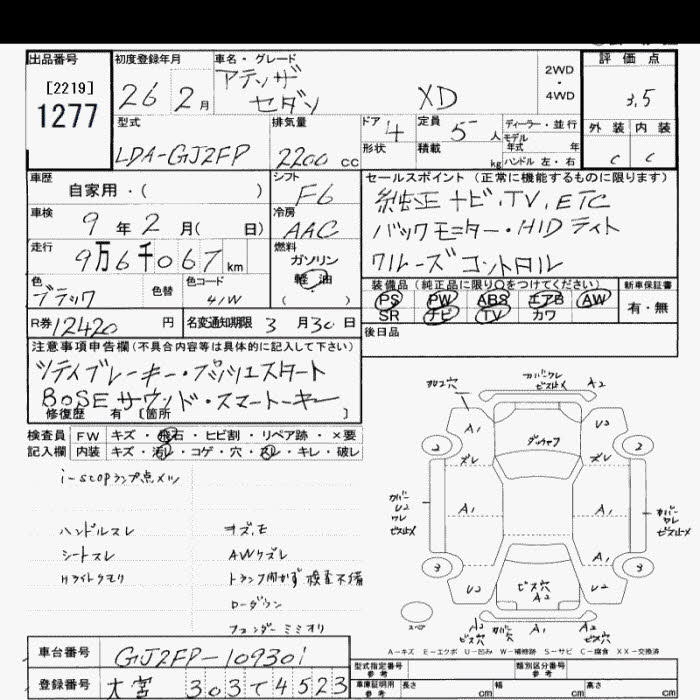 出品番号
[2219]
1277
初度登録年月
26 2月
車名・グレード
アテンザ
セダン
XD
2WD
・
4WD
評価点
3.5
外装 内装
C C
型式
LDA-GJ2FP
排気量
2200 cc
ドア 4
形状
定員 5 人
積載 kg
ディーラー・並行
モデル
年式 年
ハンドル 左・右
車歴
自家用・( )
シフト
F6
車検
9年2月( 日)
冷房
AAC
走行
9万6千067 km
燃料
ガソリン
軽油
( )
色
ブラック
色替
色コード
41W
R券 12420 円
名変通知期限 3月30日
セールスポイント (正常に機能するものに限ります)
純正ナビ、TV、ETC
バックモニター・HIDライト
クルーズコントロール
装備品(純正品に限り○をつけてください)
PS PW ABS エアB AW
SR ナビ TV カワ
新車保証書
有・無
後日品
注意事項申告欄(不具合内容等は具体的に記入して下さい)
シティブレーキ・プッシュスタート
BOSEサウンド・スマートキー
修復歴 有 〔箇所 〕
検査員
記入欄
FW キズ・飛石・ヒビ割・リペア跡・×要
内装 キズ・汚レ・コゲ・穴・スレ・キレ・破レ
i-stopランプ点メツ
ハンドルスレ
シートスレ
Hライトクモリ
AWキズレ
トランク開かず 検査不備
ローダウン
フェンダーミミオリ
A1
A2
U2
ズレ
ダッキャフ
A1
A1
A1
2
2
3
3
U2
U2
ビス穴
A2
A1
スペア
A-キズ E-エクボ U-凹み W-補修跡 S-サビ C-腐食 XX-交換済
車台番号
GJ2FP-109301
登録番号
大宮 303 て 4523
型式指定番号
参考
類別区分番号
参考
車庫証明用
参考
長さ cm
幅 cm
高さ cm